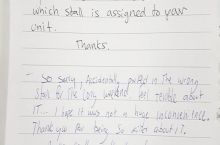 which stall is assigned to your
unit.
Thanks.
- So sorry, Accidentally parked in the wrong
stall for the long weekend feel terrible about
it... I hope it was not a huge inconvenience.
Thank you for being so kind about it.